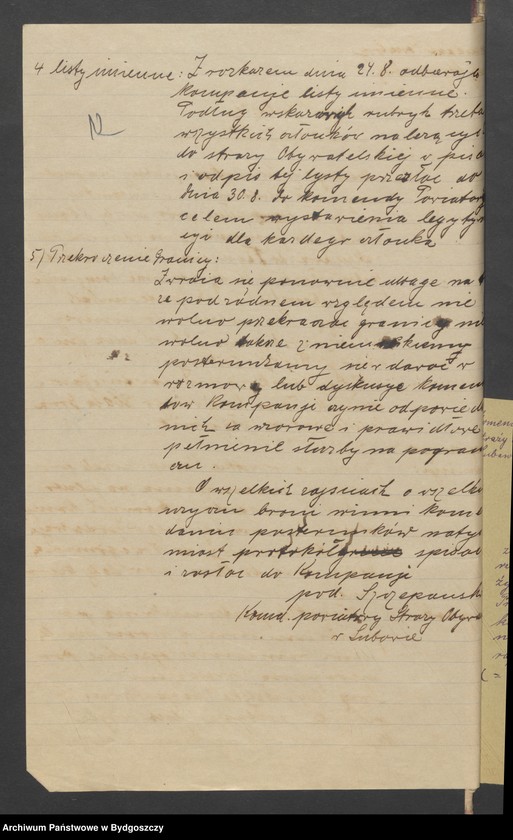 4 listy imienne: Z rozkazem dnia 24.8. odbierają
Kompanje listy imienne.
Podług wskazanych rubryk trzeba
wszystkich członków należący
do straży Obywatelskiej
i odpis tej lysty przesłać do
dnia 30.8. do komendy Powiatow
celem wystawienia legyty
cyi dla każdego członka
5) Przekroczenie granicy:
Zwraca się ponownie uwagę na
że pod żadnem względem nie
wolno przekraczać granicy
wolno także z niemieckiemy
posterunkamy nie wdawać
rozmowę lub dyskusye
Kompanji czynię odpowied
nich za wzorowe i prawidłowe
pełnienie służby na pogra
czu.
O wszelkich zajściach o wszel
użyciu broni winni kom
danci posterunków naty
miast protokół spisać
i zasłać do Kompanji
pod. Szczepański
Komd. powiatowy Straży Obyw
w Lubawie
Archiwum Państwowe w Bydgoszczy